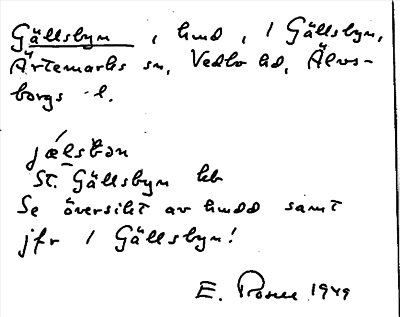 Gällsbyn, hmd, i Gällsbyn,
Ärtemarks sn, Vedbo hd, Älvs-
borgs l.
jælsbən
St. Gällsbyn hb
Se översikt av hmdd samt
jfr i Gällsbyn!
E. Rosell 1949